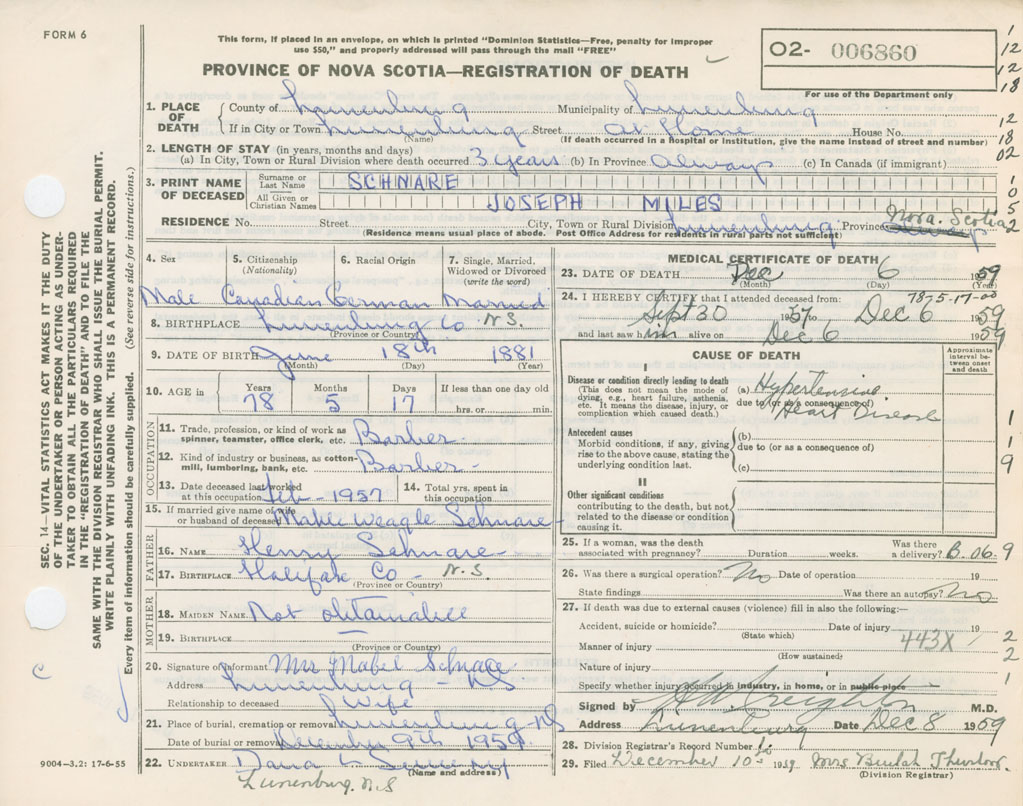 FORM 6
This form, if placed in an envelope, on which is printed "Dominion Statistics—Free, penalty for improper
use $50," and properly addressed will pass through the mail "FREE"
O2- 006860
For use of the Department only
PROVINCE OF NOVA SCOTIA—REGISTRATION OF DEATH
1. PLACE OF DEATH County of Lunenburg Municipality of Lunenburg
If in City or Town Lunenburg Street At Home House No.
(Name) (If death occurred in a hospital or institution, give the name instead of street and number)
2. LENGTH OF STAY (in years, months and days)
(a) In City, Town or Rural Division where death occurred 3 years (b) In Province Always (c) In Canada (if immigrant)
3. PRINT NAME OF DECEASED Surname or Last Name SCHNARE
All Given or Christian Names JOSEPH MILES
RESIDENCE No. Street City, Town or Rural Division Lunenburg Province Nova Scotia
(Residence means usual place of abode. Post Office Address for residents in rural parts not sufficient)
4. Sex 5. Citizenship (Nationality) 6. Racial Origin 7. Single, Married, Widowed or Divorced (write the word)
Male Canadian German Married
8. BIRTHPLACE Lunenburg Co N.S.
(Province or Country)
9. DATE OF BIRTH June 18th 1881
(Month) (Day) (Year)
10. AGE in Years Months Days If less than one day old
78 5 17 hrs. or min.
OCCUPATION
11. Trade, profession, or kind of work as spinner, teamster, office clerk, etc. Barber
12. Kind of industry or business, as cotton-mill, lumbering, bank, etc. Barber
13. Date deceased last worked at this occupation Feb - 1957 14. Total yrs. spent in this occupation
15. If married give name of wife or husband of deceased Mable Weagle Schnare
FATHER
16. NAME Henry Schnare
17. BIRTHPLACE Halifax Co - N.S.
(Province or Country)
MOTHER
18. MAIDEN NAME Not obtainable
19. BIRTHPLACE
(Province or Country)
20. Signature of informant Mrs Mabel Schnare
Address Lunenburg - NS
Relationship to deceased Wife
21. Place of burial, cremation or removal Lunenburg NS
Date of burial or removal December 9th 1959
22. UNDERTAKER Dana L Sweeny
(Name and address)
Lunenburg. N.S
MEDICAL CERTIFICATE OF DEATH
23. DATE OF DEATH Dec 6 1959
(Month) (Day) (Year)
78-5-17-00
24. I HEREBY CERTIFY that I attended deceased from:
Sept 30 1957 to Dec 6 1959
and last saw him alive on Dec 6 1959
CAUSE OF DEATH
Approximate interval between onset and death
I
Disease or condition directly leading to death
(This does not mean the mode of dying, e.g., heart failure, asthenia, etc. It means the disease, injury, or complication which caused death.)
(a) Hypertensive
due to (or as a consequence of)
Heart Disease
Antecedent causes
Morbid conditions, if any, giving rise to the above cause, stating the underlying condition last.
(b)
due to (or as a consequence of)
(c)
II
Other significant conditions
contributing to the death, but not related to the disease or condition causing it.
25. If a woman, was the death associated with pregnancy? Duration weeks. Was there a delivery? B.06.9
26. Was there a surgical operation? No Date of operation 19
State findings Was there an autopsy? No
27. If death was due to external causes (violence) fill in also the following:—
Accident, suicide or homicide? Date of injury 19
(State which)
Manner of injury 443X
(How sustained)
Nature of injury
Specify whether injury occurred in industry, in home, or in public place
Signed by M.D.
Address Lunenburg Date Dec 8 1959
28. Division Registrar's Record Number
29. Filed December 10 - 1959 Mrs Beulah
(Division Registrar)
SEC. 14—VITAL STATISTICS ACT MAKES IT THE DUTY
OF THE UNDERTAKER OR PERSON ACTING AS UNDER-
TAKER TO OBTAIN ALL THE PARTICULARS REQUIRED
IN THE "REGISTRATION OF DEATH" AND TO FILE THE
SAME WITH THE DIVISION REGISTRAR WHO SHALL ISSUE THE BURIAL PERMIT.
WRITE PLAINLY WITH UNFADING INK. THIS IS A PERMANENT RECORD.
Every item of information should be carefully supplied. (See reverse side for instructions.)
9004-3.2: 17-6-55
1
12
12
18
12
18
02
1
0
5
2
1
1
9
2
2
1